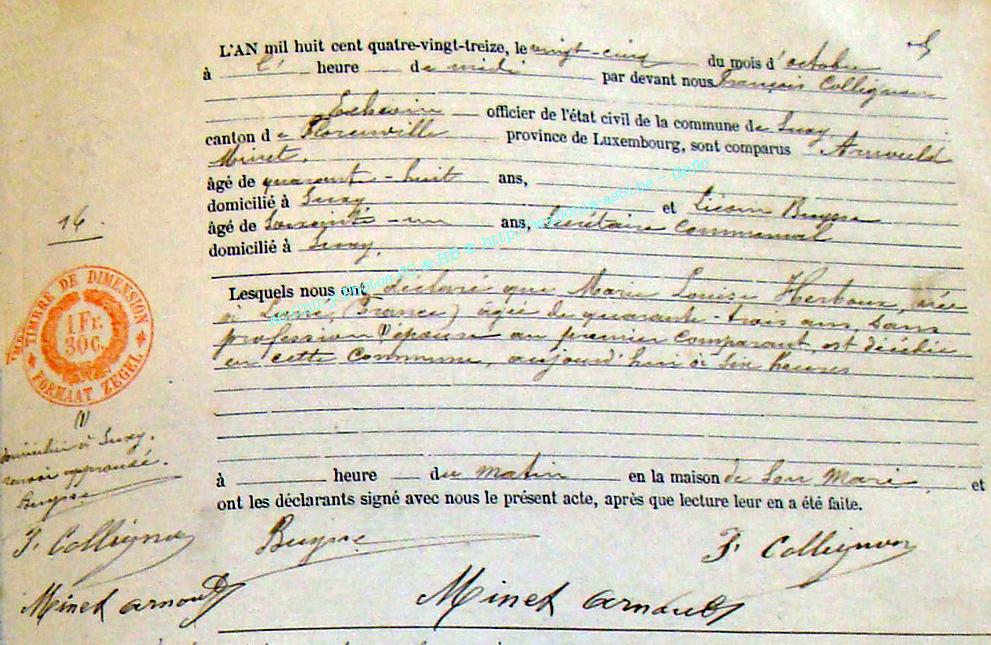 L'AN mil huit cent quatre-vingt-treize, le vingt-cinq du mois d'octobre
à l' heure de midi par devant nous François Collignon
Echevin officier de l'état civil de la commune de Suxy
canton de Florenville province de Luxembourg, sont comparus Arnould
Minet,
âgé de quarante-huit ans,
domicilié à Suxy et Buysse
âgé de soixante-un ans, Secrétaire Communal
domicilié à Suxy,
16
Lesquels nous ont déclaré que Marie Louise Herboux, née
à (France) âgée de quarante-trois ans, sans
profession (1) épouse au premier comparant, est décédée
en cette Commune, aujourd'hui à six heures
TIMBRE DE DIMENSION
1 Fr.
30 C.
FORMAAT ZEGEL
(1)
domiciliée à Suxy.
renvoi approuvé.
Buysse
à heure du matin en la maison de son mari, et
ont les déclarants signé avec nous le présent acte, après que lecture leur en a été faite.
F. Collignon Buysse F. Collignon
Minet arnould Minet arnould